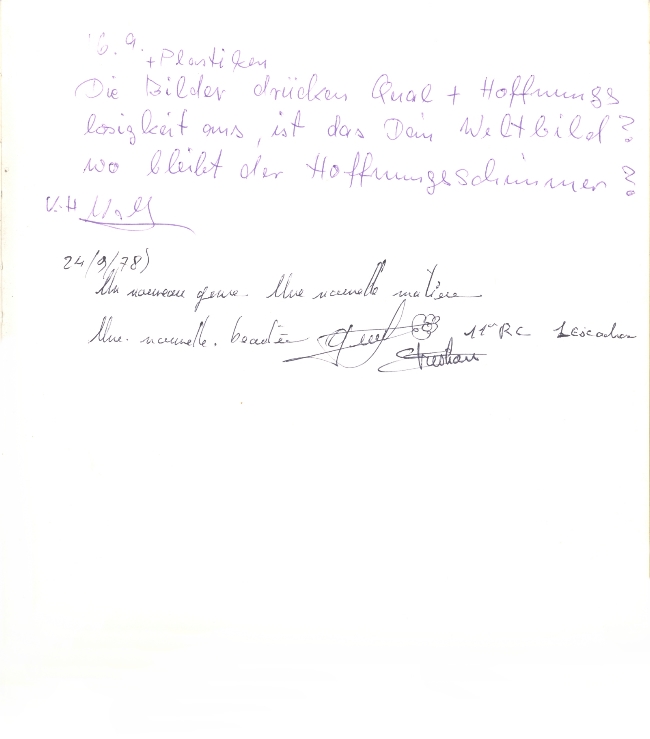 16.9.
+ Plastiken
Die Bilder drücken Qual + Hoffnungs
losigkeit aus, ist das Dein Weltbild?
wo bleibt der Hoffnungsschimmer?
V. H.
24/9/78)
Un nouveau genre. Une nouvelle matière
Une. nouvelle. beautée 11em RC